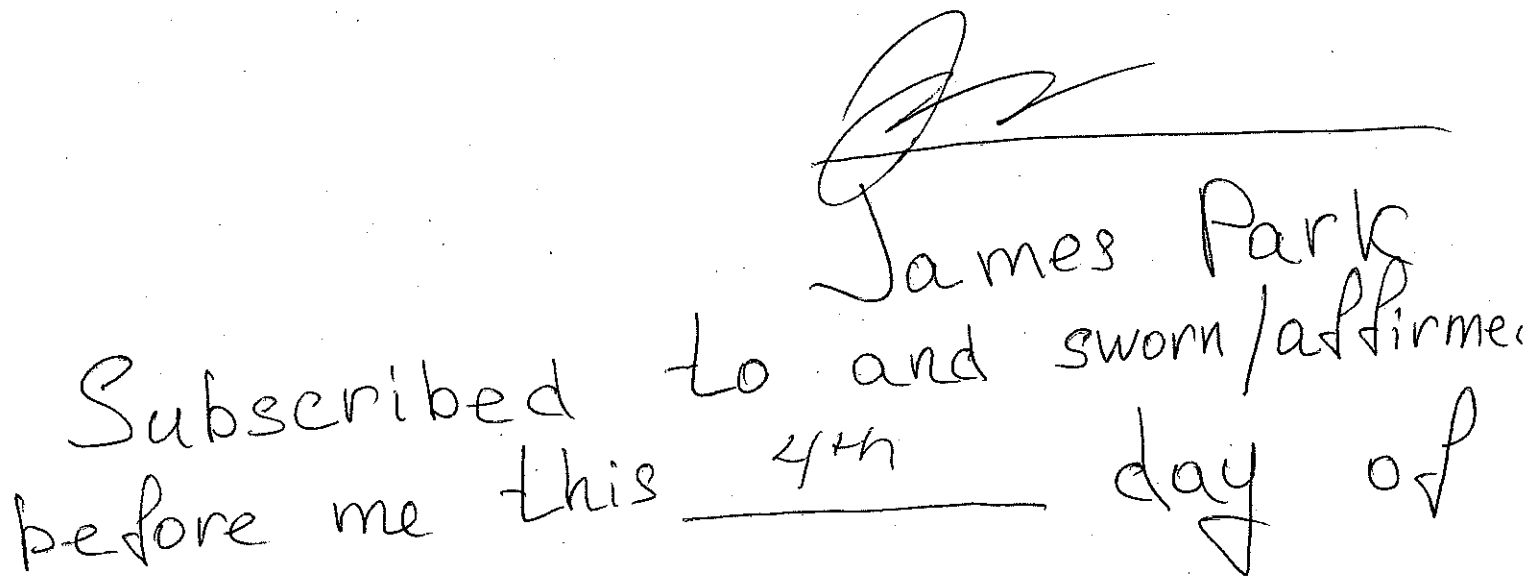 James Park
Subscribed to and sworn/affirmed
before me this 4th day of